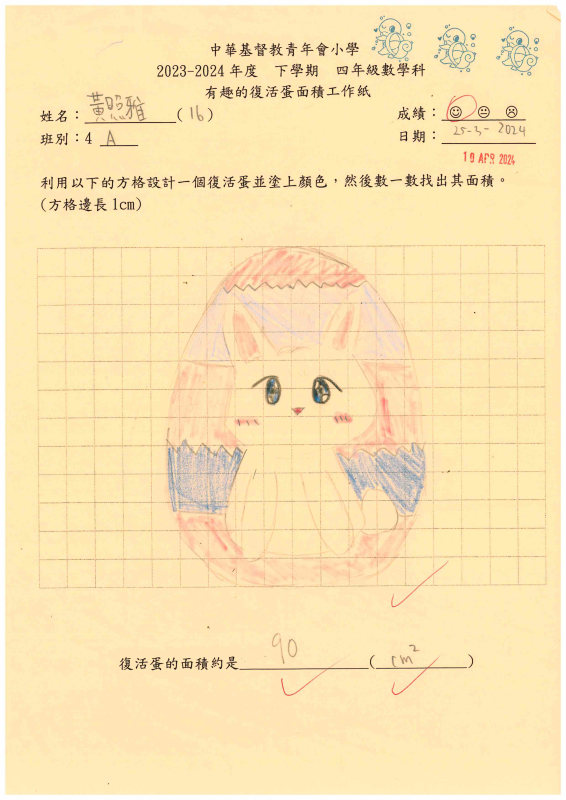 中華基督教青年會小學
2023-2024年度 下學期 四年級數學科
有趣的復活蛋面積工作紙
姓名：黃照雅(16) 成績：
班別：4 A 日期：25-3-2024
10 APR 2024
利用以下的方格設計一個復活蛋並塗上顏色，然後數一數找出其面積。
(方格邊長1cm)
復活蛋的面積約是 90 (cm²)